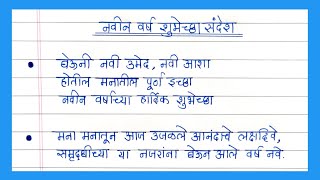 नवीन वर्ष शुभेच्छा संदेश
घेऊनी नवी उमेद, नवी आशा
होतील मनातील पूर्ण इच्छा
नवीन वर्षाच्या हार्दिक शुभेच्छा
मना मनातून आज उजळले आनंदाचे लक्षदिवे,
समृद्धीच्या या नजरांना घेऊन आले वर्ष नवे.